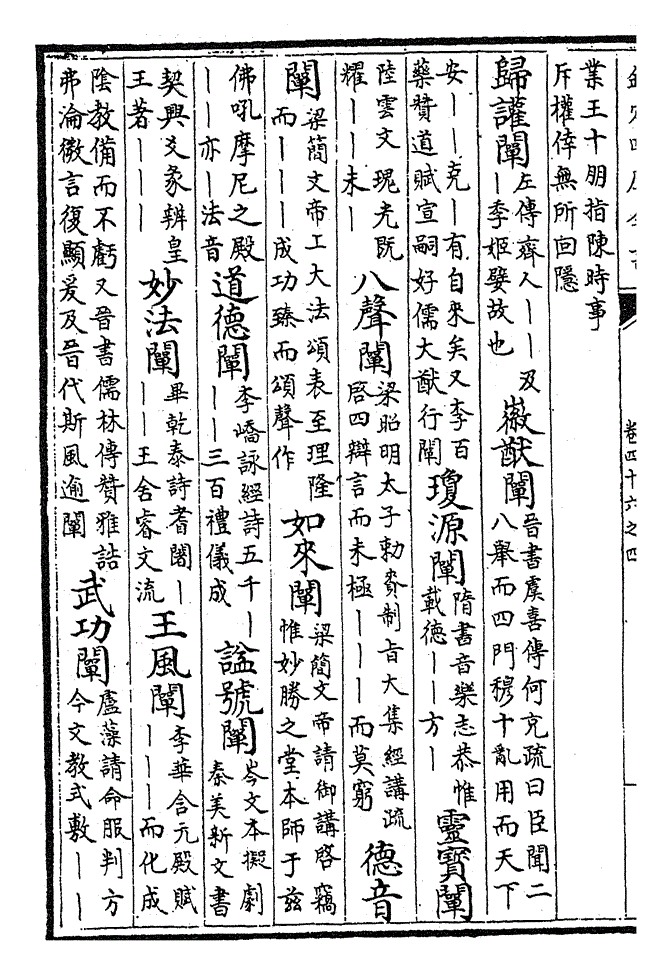 欽定四庫全書
卷四十六之四
業王十朋指陳時事
斥權倖無所回隱
歸讙闡
左傳齊人——及
—季姬嬖故也
徽猷闡
晉書虞喜傳何充疏曰臣聞二
八舉而四門穆十亂用而天下
安——克—有自來矣又李百
藥贊道賦宣嗣好儒大猷行闡
瓊源闡
隋書音樂志恭惟
載德——方—
靈寶闡
陸雲文瑰光既
耀——未—
八聲闡
梁昭明太子勅賚制旨大集經講疏
啓四辯言而未極———而莫窮
德音
闡
梁簡文帝工大法頌表至理隆
而———成功臻而頌聲作
如來闡
梁簡文帝請御講啓竊
惟妙勝之堂本師于兹
佛吼摩尼之殿
——亦—法音
道德闡
李嶠詠經詩五千—
——三百禮儀成
諡號闡
岑文本擬劇
秦美新文書
契興爻象辨皇
王著———
妙法闡
畢乾泰詩耆闍—
——王舍睿文流
王風闡
李華含元殿賦
———而化成
陰教備而不虧又晉書儒林傳贊雅誥
弗淪微言復顯爰及晉代斯風逾闡
武功闡
盧藻請命服判方
今文教式敷——